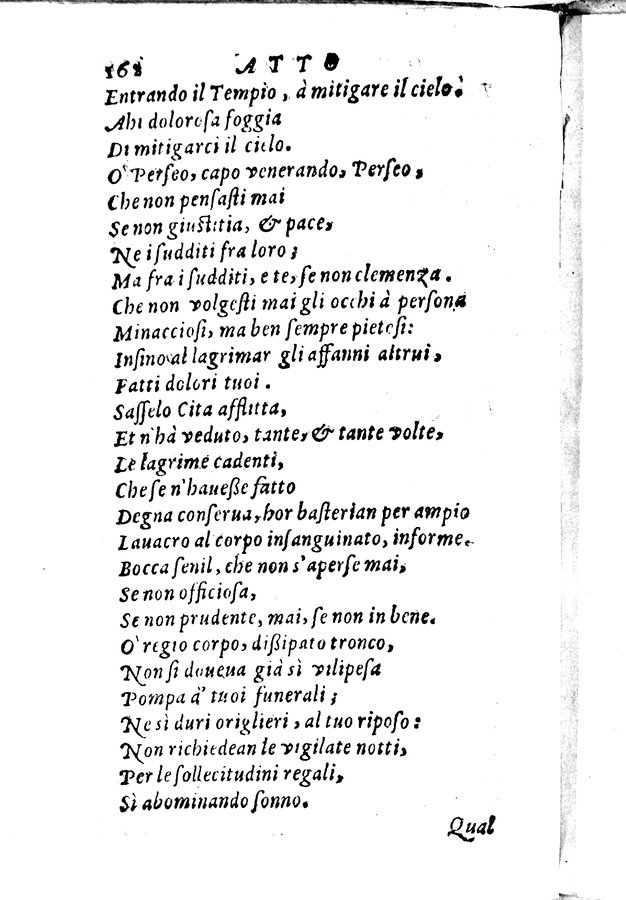 162 ATTO
Entrando il Tempio, à mitigare il cielo?
Ahi dolorosa foggia
Di mitigarci il cielo.
O' Perseo, capo venerando, Perseo,
Che non pensasti mai
Se non giustitia, & pace,
Ne i sudditi fra loro;
Ma fra i sudditi, e te, se non clemenza.
Che non volgesti mai gli occhi à persona
Minacciosi, ma ben sempre pietosi:
Insino al lagrimar gli affanni altrui,
Fatti dolori tuoi.
Sasselo Cita afflitta,
Et n'hà veduto, tante, & tante volte,
Le lagrime cadenti,
Che se n'hauesse fatto
Degna conserua, hor basterian per ampio
Lauacro al corpo insanguinato, informe.
Bocca senil, che non s'aperse mai,
Se non officiosa,
Se non prudente, mai, se non in bene.
O' regio corpo, dissipato tronco,
Non si doueua già sì vilipesa
Pompa à' tuoi funerali;
Ne sì duri origlieri, al tuo riposo:
Non richiedean le vigilate notti,
Per le sollecitudini regali,
Sì abominando sonno.
Qual